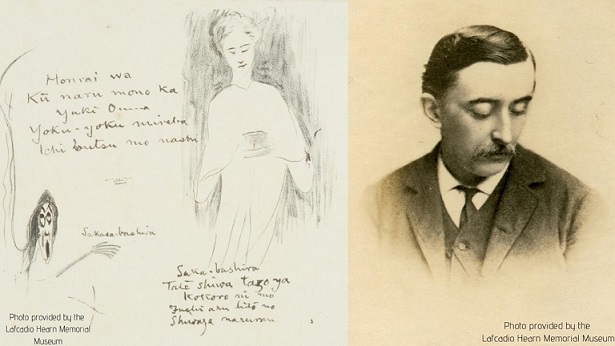 Honrai wa
Kū naru mono ka
Yuki Onna
Yoku-yoku mireba
Ichi butsu mo nashi
Sakasa-bashira
Saka-bashira
Tate shiwa tazo ya
Kokoro ni mo
aru hito no
Shiwaza
Photo provided by the
Lafcadio Hearn Memorial
Museum
Photo provided by the
Lafcadio Hearn Memorial Museum